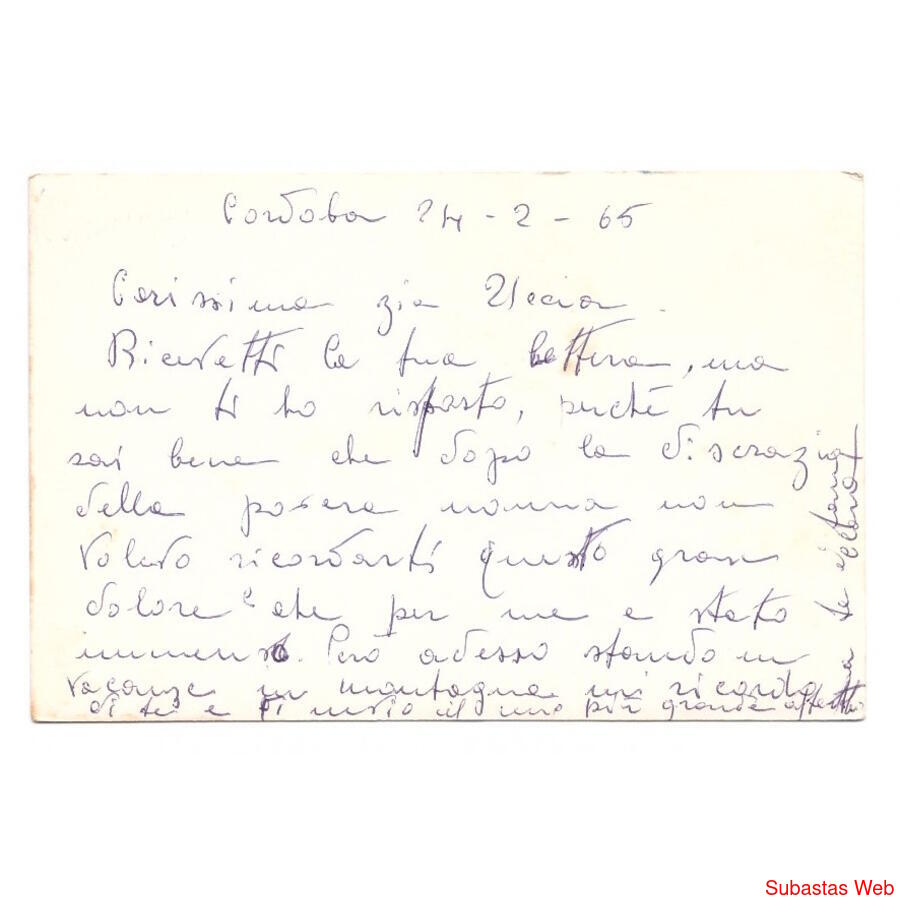 Cordoba 24-2-65
Carissima zia Uccia.
Ricevetti la tua lettera, ma
non ti ho risposto, perché tu
sai bene che dopo la disgrazia
della povera nonna non
volevo ricordarti questo gran
dolore che per me e stato
immenso. Però adesso stando in
vacanze in montagna mi ricordo
di te e ti invio il mio più grande affetto
a te e
Subastas Web